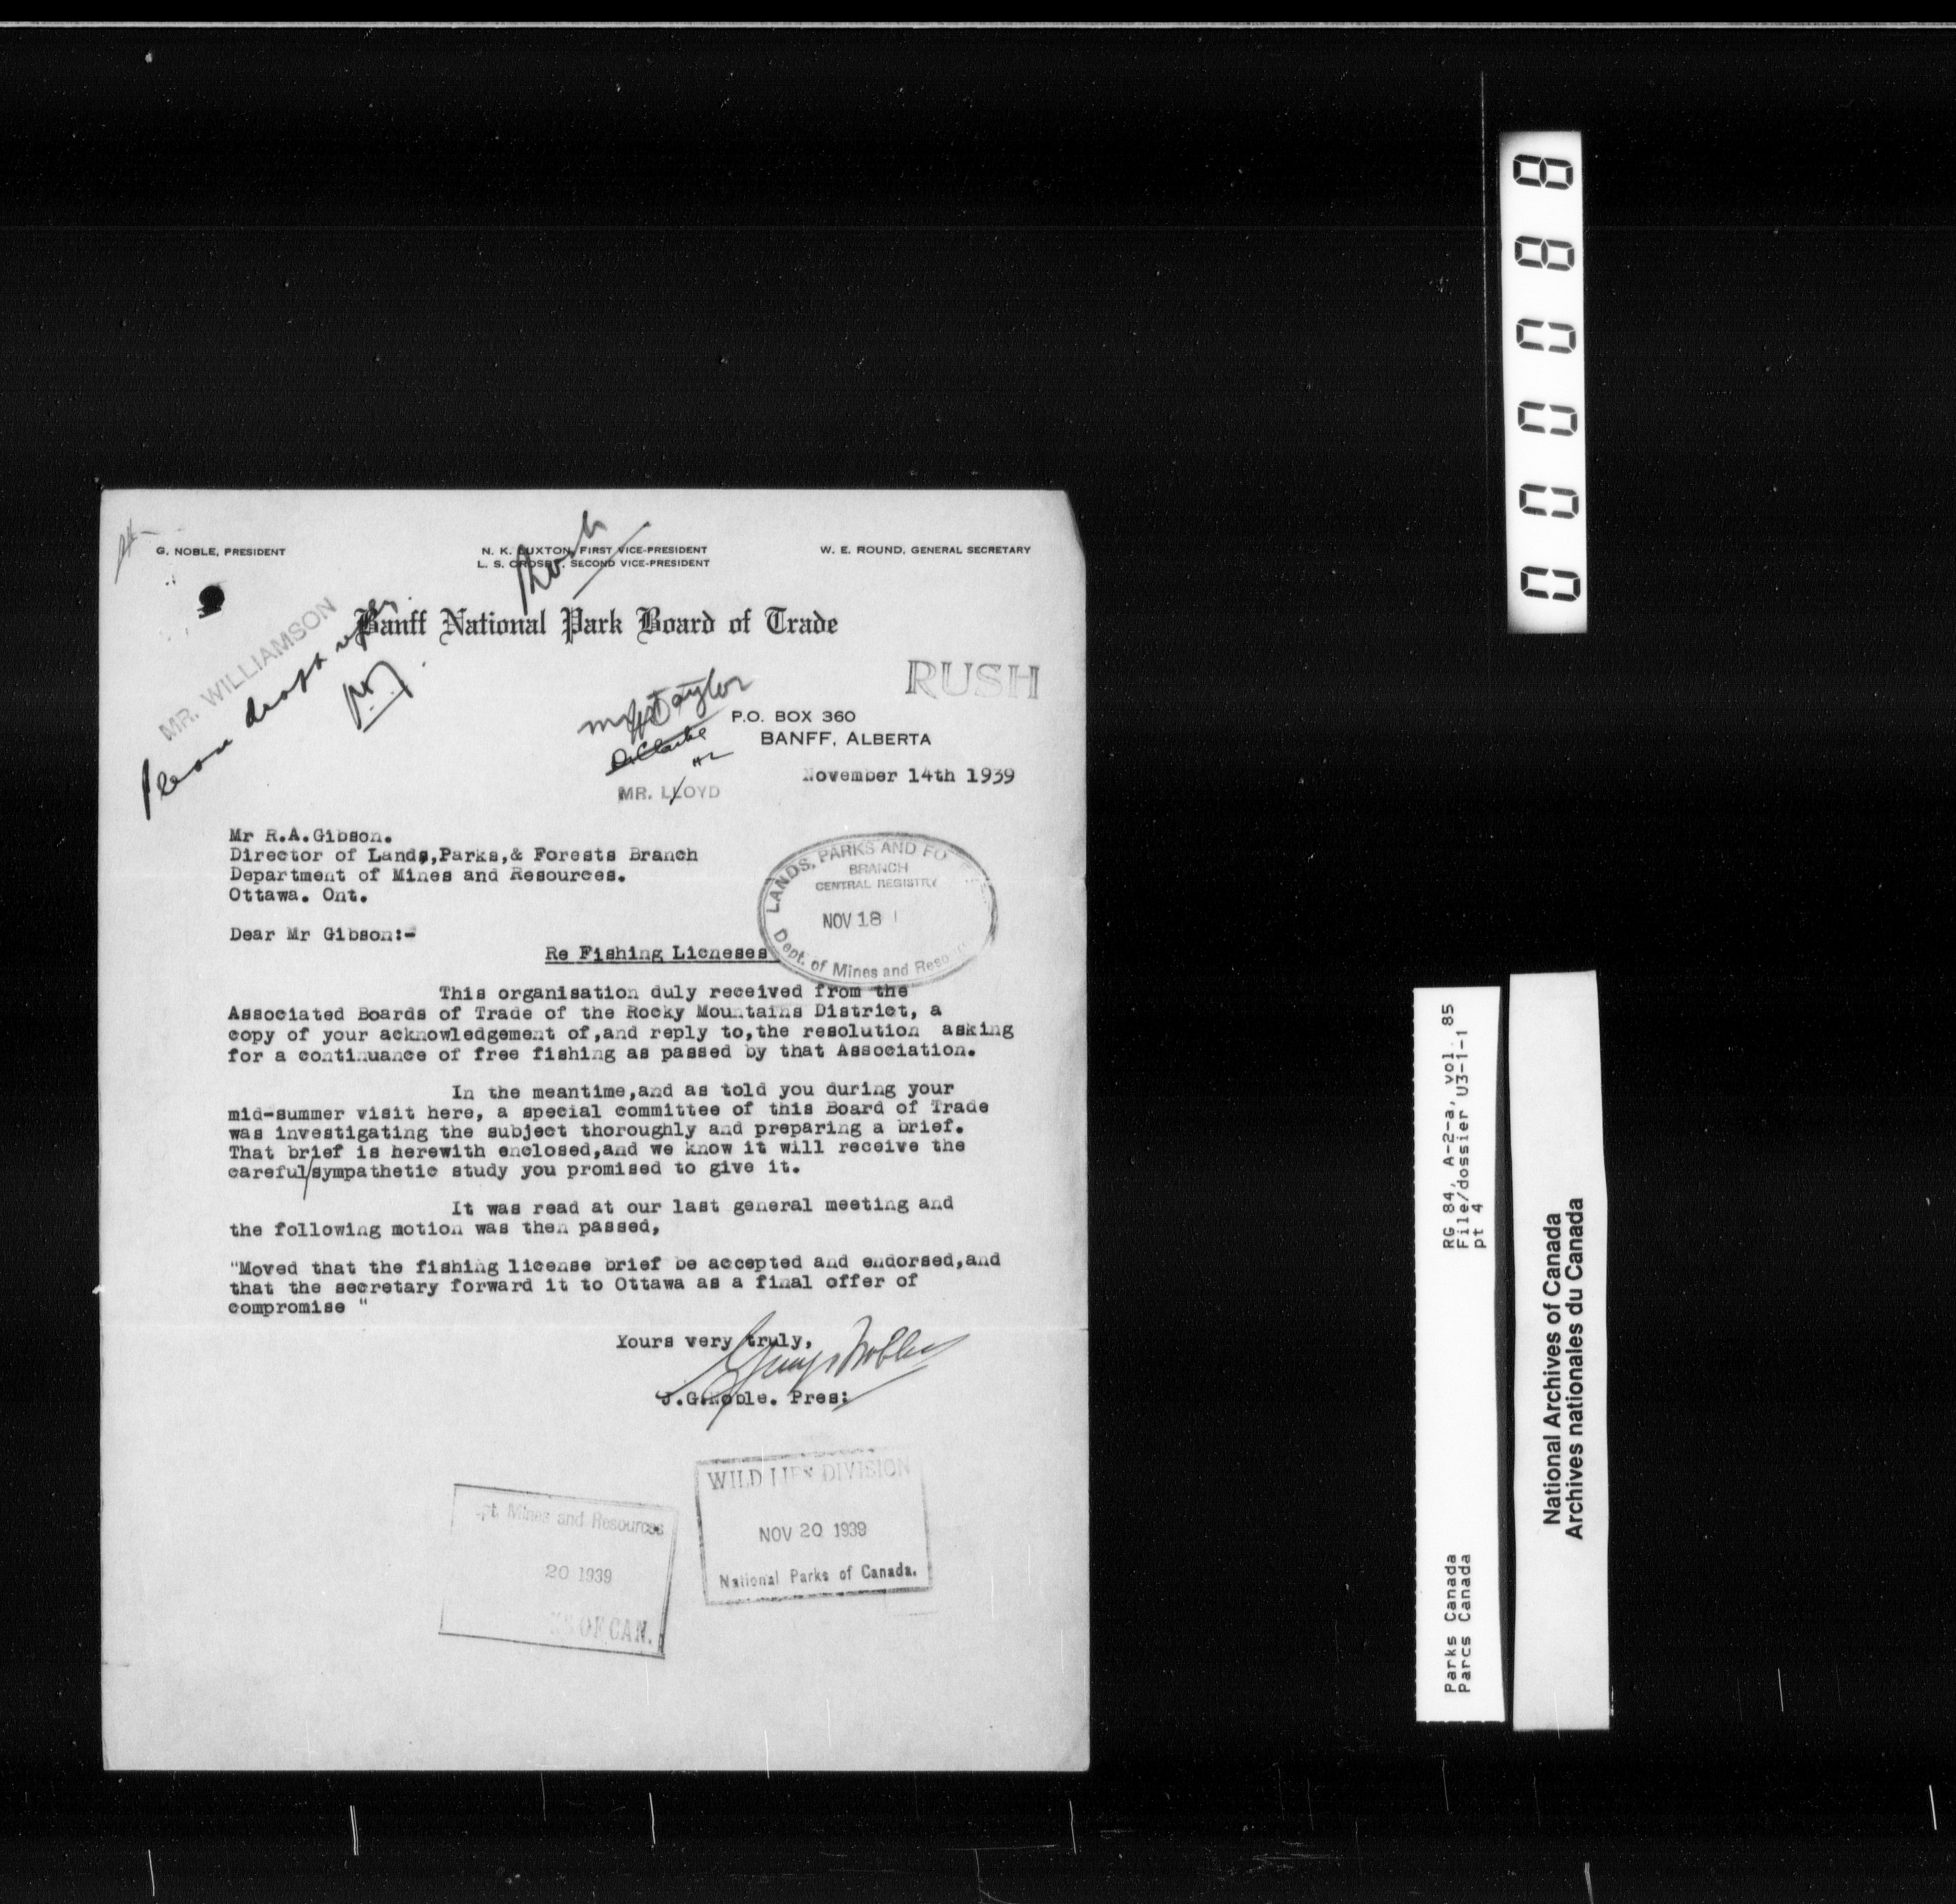 G. NOBLE, PRESIDENT
N. K. LUXTON, FIRST VICE-PRESIDENT
L. S. CROSBY, SECOND VICE-PRESIDENT
W. E. ROUND, GENERAL SECRETARY
Rush
Banff National Park Board of Trade
MR. WILLIAMSON
Please draft reply
RUSH
Mr Taylor
P.O. BOX 360
BANFF, ALBERTA
MR. LLOYD
November 14th 1939
Mr R.A.Gibson.
Director of Lands,Parks,& Forests Branch
Department of Mines and Resources.
Ottawa. Ont.
LANDS, PARKS AND FO
BRANCH
CENTRAL REGISTRY
NOV 18
Dept. of Mines and Reso
Dear Mr Gibson:-
Re Fishing Licneses
This organisation duly received from the
Associated Boards of Trade of the Rocky Mountains District, a
copy of your acknowledgement of,and reply to,the resolution asking
for a continuance of free fishing as passed by that Association.
In the meantime,and as told you during your
mid-summer visit here, a special committee of this Board of Trade
was investigating the subject thoroughly and preparing a brief.
That brief is herewith enclosed,and we know it will receive the
careful/sympathetic study you promised to give it.
It was read at our last general meeting and
the following motion was then passed,
"Moved that the fishing license brief be accepted and endorsed,and
that the secretary forward it to Ottawa as a final offer of
compromise "
Yours very truly,
J.G.Noble. Pres:
pt. Mines and Resources
20 1939
OF CAN.
WILD LIFE DIVISION
NOV 20 1939
National Parks of Canada.
000088
RG 84, A-2-a, vol. 85
File/dossier U3-1-1
pt 4
Parks Canada
Parcs Canada
National Archives of Canada
Archives nationales du Canada